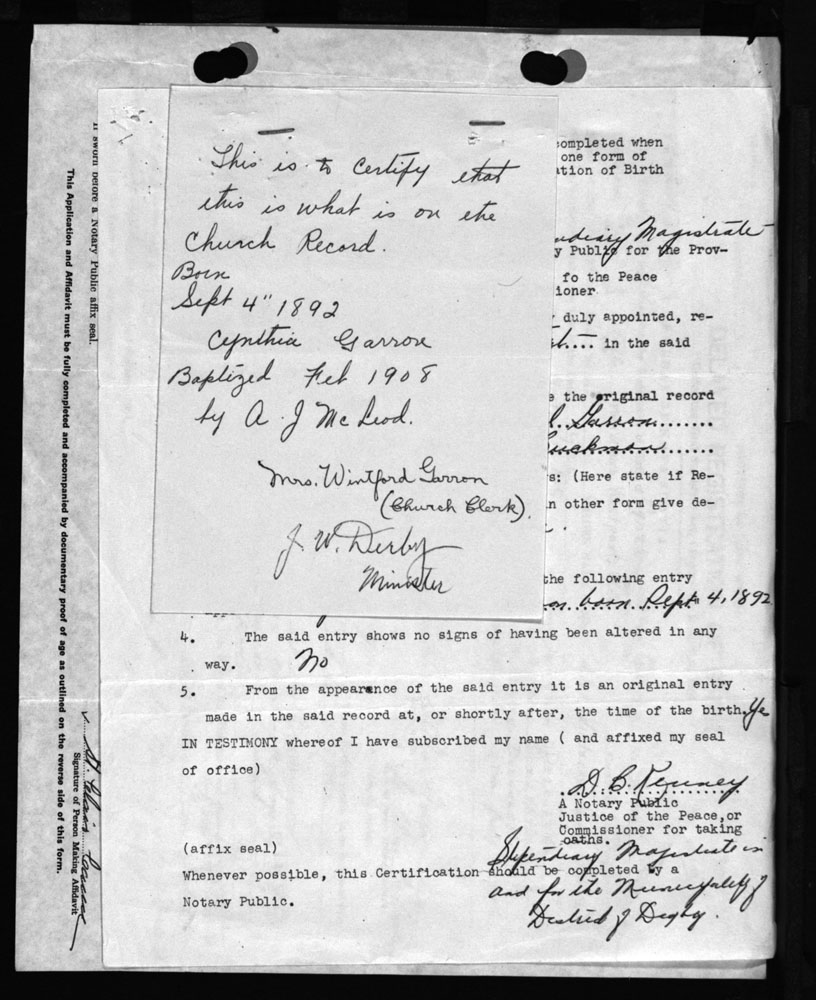 This is to certify that
this is what is on the
Church Record.
Born
Sept 4" 1892
Cynthia Garron
Baptized Feb 1908
by A. J McLeod.
Mrs. Wintford Garron
(Church Clerk).
J. W. Derby
Minister
completed when
one form of
ation of Birth
endiary Magistrate
y Public for the Prov-
fo the Peace
ioner
duly appointed, re-
.... in the said
e the original record
Garron.......
s: (Here state if Re-
n other form give de-
the following entry
born Sept 4, 1892
4. The said entry shows no signs of having been altered in any
way. No
5. From the appearance of the said entry it is an original entry
made in the said record at, or shortly after, the time of the birth.
IN TESTIMONY whereof I have subscribed my name ( and affixed my seal
of office)
D. B. Kenney
A Notary Public
Justice of the Peace,or
Commissioner for taking
oaths.
(affix seal)
Stipendiary Magistrate in
Whenever possible, this Certification should be completed by a
and for the Municipality of
Notary Public.
District of Digby.
If sworn before a Notary Public affix seal.
This Application and Affidavit must be fully completed and accompanied by documentary proof of age as outlined on the reverse side of this form.
Signature of Person Making Affidavit